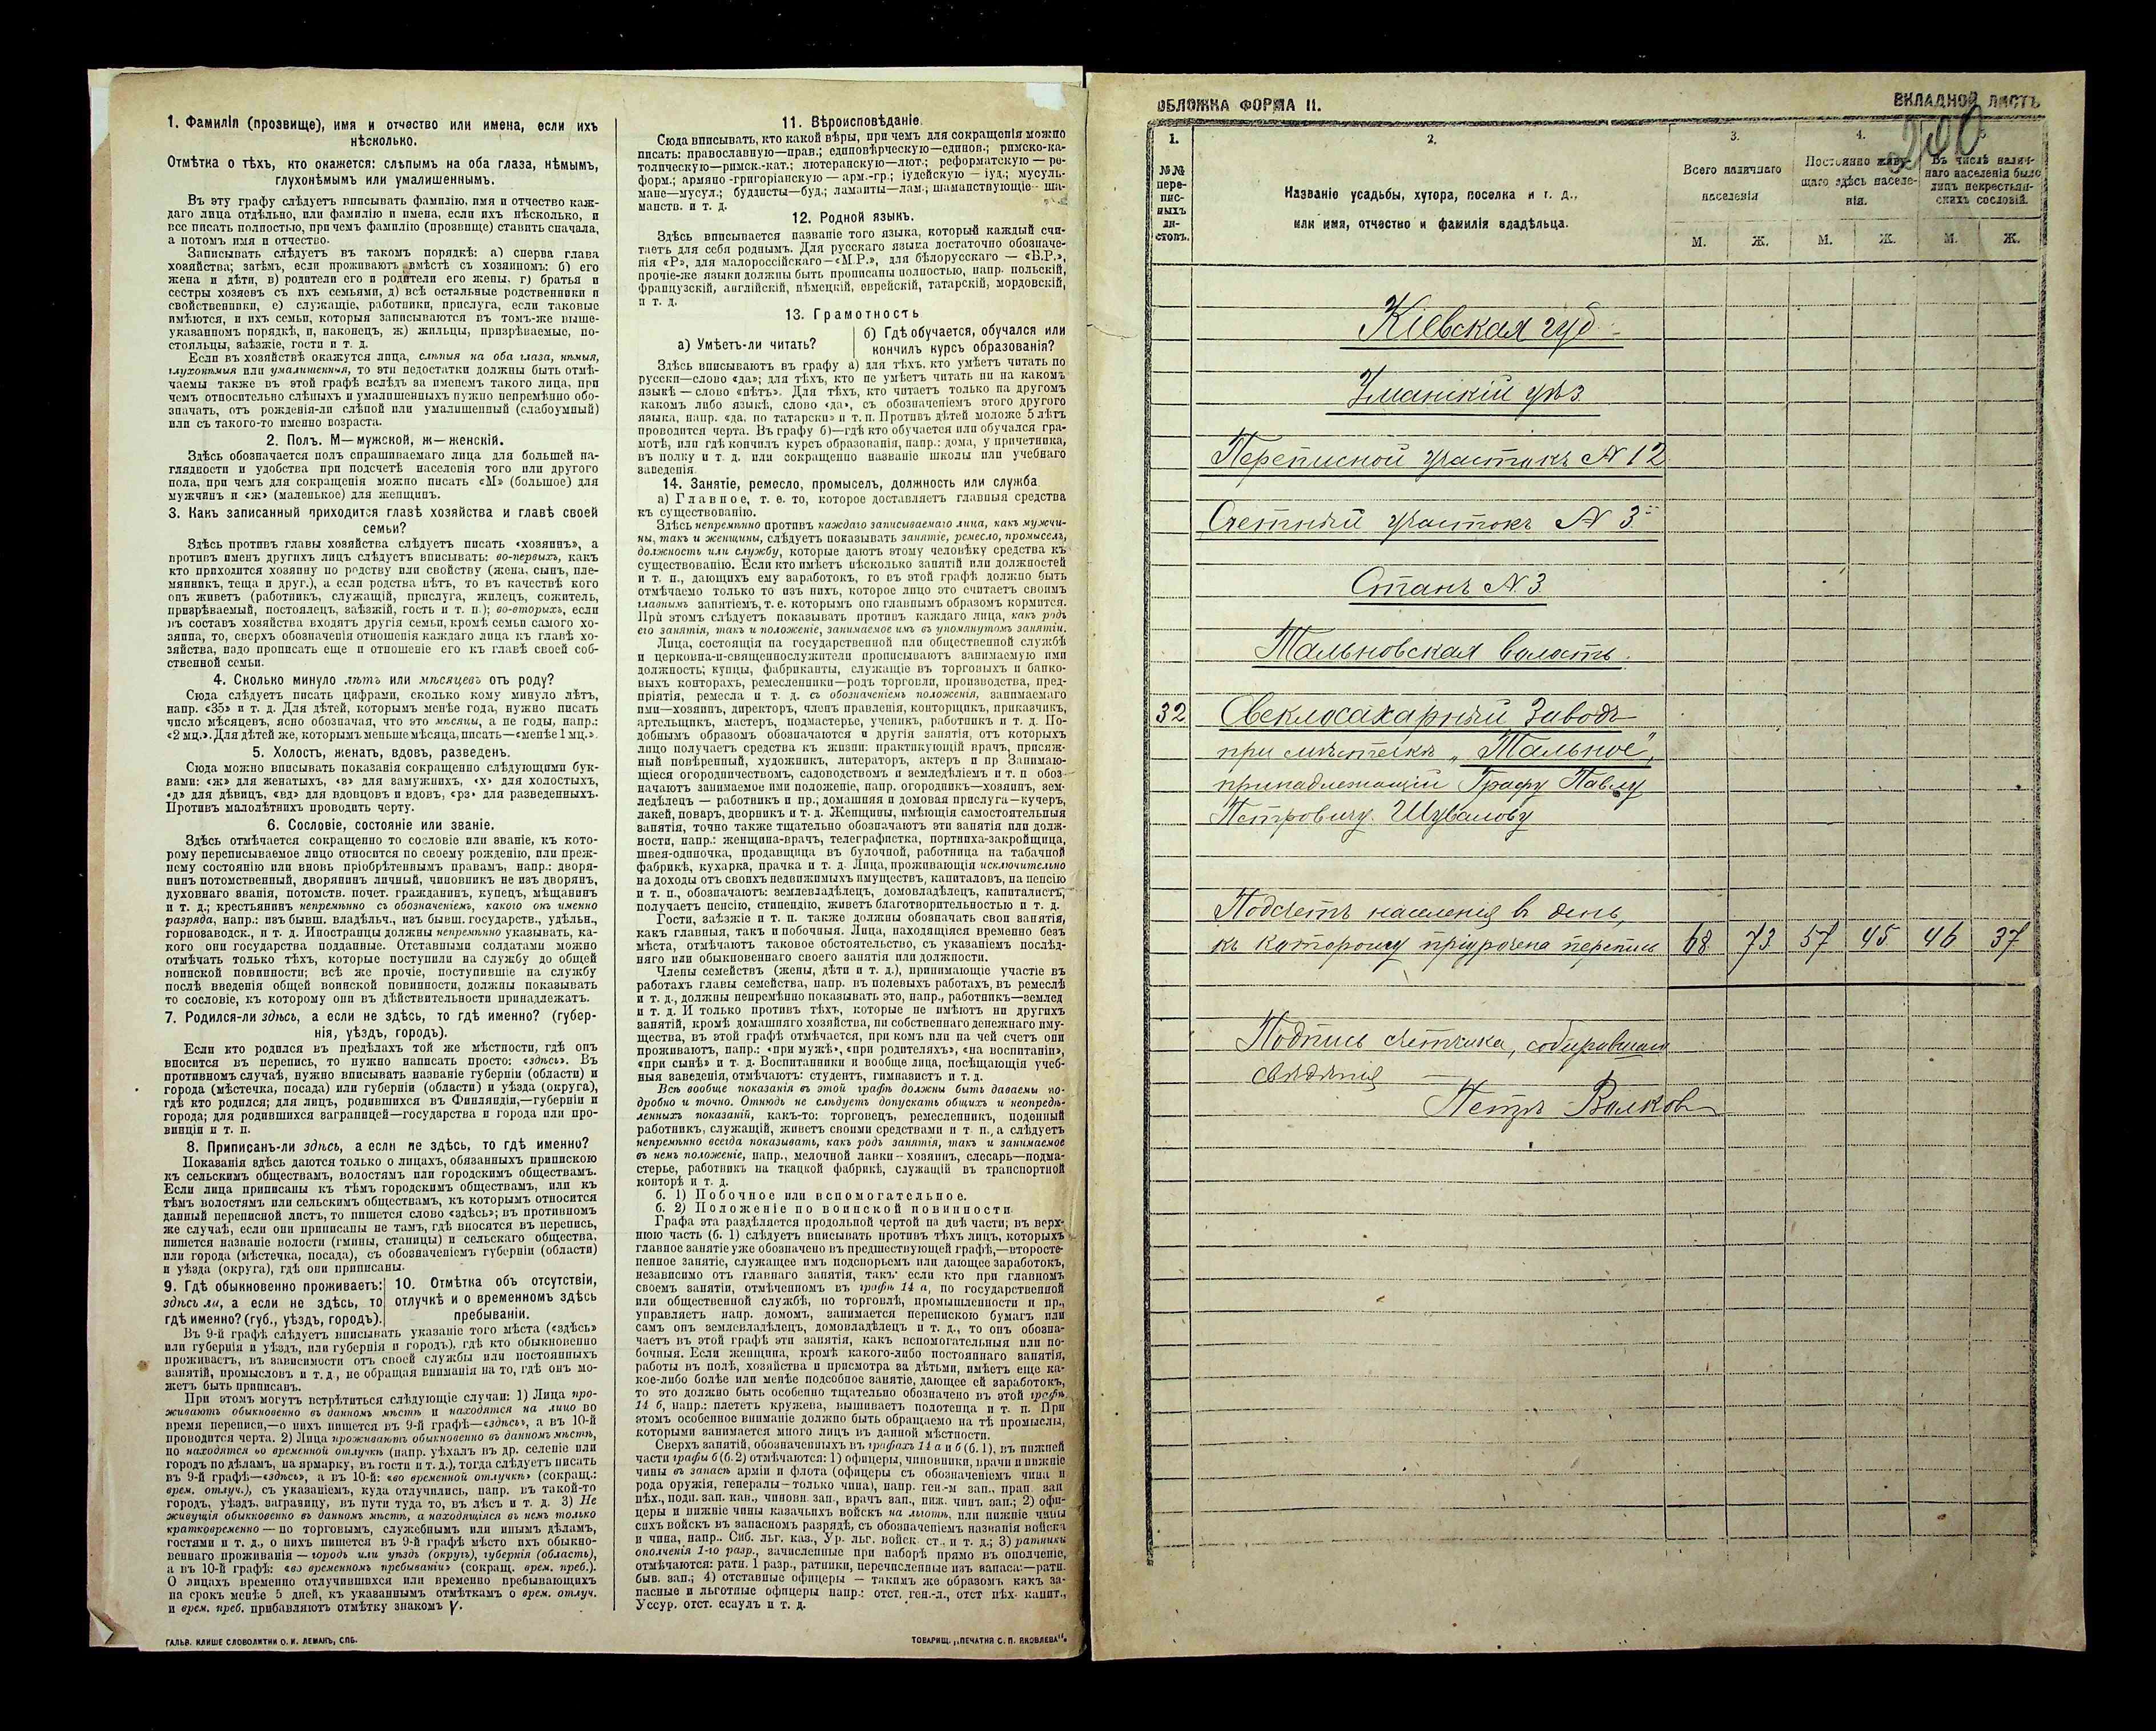 1. Фамилія (прозвище), имя и отчество или имена, если ихъ
нѣсколько.
Отмѣтка о тѣхъ, кто окажется: слѣпымъ на оба глаза, нѣмымъ,
глухонѣмымъ или умалишеннымъ.
Въ эту графу слѣдуетъ вписывать фамилію, имя и отчество каж-
даго лица отдѣльно, или фамилію и имена, если ихъ нѣсколько, и
все писать полностью, при чемъ фамилію (прозвище) ставить сначала,
а потомъ имя и отчество.
Записывать слѣдуетъ въ такомъ порядкѣ: а) сперва глава
хозяйства; затѣмъ, если проживаютъ вмѣстѣ съ хозяиномъ: б) его
жена и дѣти, в) родители его и родители его жены, г) братья и
сестры хозяевъ съ ихъ семьями, д) всѣ остальные родственники и
свойственники, е) служащіе, работники, прислуга, если таковые
имѣются, и ихъ семьи, которыя записываются въ томъ-же выше-
указанномъ порядкѣ, и, наконецъ, ж) жильцы, призрѣваемые, по-
стояльцы, заѣзжіе, гости и т. д.
Если въ хозяйствѣ окажутся лица, слѣпыя на оба глаза, нѣмыя,
глухонѣмыя или умалишенныя, то эти недостатки должны быть отмѣ-
чаемы также въ этой графѣ вслѣдъ за именемъ такого лица, при
чемъ относительно слѣпыхъ и умалишенныхъ нужно непремѣнно обо-
значать, отъ рожденія-ли слѣпой или умалишенный (слабоумный)
или съ такого-то именно возраста.
2. Полъ. М—мужской, ж—женскій.
Здѣсь обозначается полъ спрашиваемаго лица для большей на-
глядности и удобства при подсчетѣ населенія того или другого
пола, при чемъ для сокращенія можно писать «М» (большое) для
мужчинъ и «ж» (маленькое) для женщинъ.
3. Какъ записанный приходится главѣ хозяйства и главѣ своей
семьи?
Здѣсь противъ главы хозяйства слѣдуетъ писать «хозяинъ», а
противъ именъ другихъ лицъ слѣдуетъ вписывать: во-первыхъ, какъ
кто приходится хозяину по родству или свойству (жена, сынъ, пле-
мянникъ, теща и друг.), а если родства нѣтъ, то въ качествѣ кого
онъ живетъ (работникъ, служащій, прислуга, жилецъ, сожитель,
призрѣваемый, постоялецъ, заѣзжій, гость и т. п.); во-вторыхъ, если
въ составъ хозяйства входятъ другія семьи, кромѣ семьи самого хо-
зяина, то, сверхъ обозначенія отношенія каждаго лица къ главѣ хо-
зяйства, надо прописать еще и отношеніе его къ главѣ своей соб-
ственной семьи.
4. Сколько минуло лѣтъ или мѣсяцевъ отъ роду?
Сюда слѣдуетъ писать цифрами, сколько кому минуло лѣтъ,
напр. «35» и т. д. Для дѣтей, которымъ менѣе года, нужно писать
число мѣсяцевъ, ясно обозначая, что это мѣсяцы, а не годы, напр.:
«2 мц.». Для дѣтей же, которымъ меньше мѣсяца, писать—«менѣе 1 мц.».
5. Холостъ, женатъ, вдовъ, разведенъ.
Сюда можно вписывать показанія сокращенно слѣдующими бук-
вами: «ж» для женатыхъ, «з» для замужнихъ, «х» для холостыхъ,
«д» для дѣвицъ, «вд» для вдовцовъ и вдовъ, «рз» для разведенныхъ.
Противъ малолѣтнихъ проводить черту.
6. Сословіе, состояніе или званіе.
Здѣсь отмѣчается сокращенно то сословіе или званіе, къ кото-
рому переписываемое лицо относится по своему рожденію, или преж-
нему состоянію или вновь пріобрѣтеннымъ правамъ, напр.: дворя-
нинъ потомственный, дворянинъ личный, чиновникъ не изъ дворянъ,
духовнаго званія, потомств. почет. гражданинъ, купецъ, мѣщанинъ
и т. д.; крестьянинъ непремѣнно съ обозначеніемъ, какого онъ именно
разряда, напр.: изъ бывш. владѣльч., изъ бывш. государств., удѣльн.,
горнозаводск., и т. д. Иностранцы должны непремѣнно указывать, ка-
кого они государства подданные. Отставными солдатами можно
отмѣчать только тѣхъ, которые поступили на службу до общей
воинской повинности; всѣ же прочіе, поступившіе на службу
послѣ введенія общей воинской повинности, должны показывать
то сословіе, къ которому они въ дѣйствительности принадлежатъ.
7. Родился-ли здѣсь, а если не здѣсь, то гдѣ именно? (губер-
нія, уѣздъ, городъ).
Если кто родился въ предѣлахъ той же мѣстности, гдѣ онъ
вносится въ перепись, то нужно написать просто: «здѣсь». Въ
противномъ случаѣ, нужно вписывать названіе губерніи (области) и
города (мѣстечка, посада) или губерніи (области) и уѣзда (округа),
гдѣ кто родился; для лицъ, родившихся въ Финляндіи,—губерніи и
города; для родившихся заграницей—государства и города или про-
винціи и т. п.
8. Приписанъ-ли здѣсь, а если не здѣсь, то гдѣ именно?
Показанія здѣсь даются только о лицахъ, обязанныхъ припискою
къ сельскимъ обществамъ, волостямъ или городскимъ обществамъ.
Если лица приписаны къ тѣмъ городскимъ обществамъ, или къ
тѣмъ волостямъ или сельскимъ обществамъ, къ которымъ относится
данный переписной листъ, то пишется слово «здѣсь»; въ противномъ
же случаѣ, если они приписаны не тамъ, гдѣ вносятся въ перепись,
пишется названіе волости (гмины, станицы) и сельскаго общества,
или города (мѣстечка, посада), съ обозначеніемъ губерніи (области)
и уѣзда (округа), гдѣ они приписаны.
9. Гдѣ обыкновенно проживаетъ:
здѣсь ли, а если не здѣсь, то
гдѣ именно? (губ., уѣздъ, городъ).
10. Отмѣтка объ отсутствіи,
отлучкѣ и о временномъ здѣсь
пребываніи.
Въ 9-й графѣ слѣдуетъ вписывать указаніе того мѣста («здѣсь»
или губернія и уѣздъ, или губернія и городъ), гдѣ кто обыкновенно
проживаетъ, въ зависимости отъ своей службы или постоянныхъ
занятій, промысловъ и т. д., не обращая вниманія на то, гдѣ онъ мо-
жетъ быть приписанъ.
При этомъ могутъ встрѣтиться слѣдующіе случаи: 1) Лица про-
живаютъ обыкновенно въ данномъ мѣстѣ и находятся на лицо во
время переписи,—о нихъ пишется въ 9-й графѣ—«здѣсь», а въ 10-й
проводится черта. 2) Лица проживаютъ обыкновенно въ данномъ мѣстѣ,
но находятся во временной отлучкѣ (напр. уѣхалъ въ др. селеніе или
городъ по дѣламъ, на ярмарку, въ гости и т. д.), тогда слѣдуетъ писать
въ 9-й графѣ—«здѣсь», а въ 10-й: «во временной отлучкѣ» (сокращ.:
врем. отлуч.), съ указаніемъ, куда отлучились, напр. въ такой-то
городъ, уѣздъ, заграницу, въ пути туда то, въ лѣсъ и т. д. 3) Не
живущія обыкновенно въ данномъ мѣстѣ, а находящіяся въ немъ только
кратковременно — по торговымъ, служебнымъ или инымъ дѣламъ,
гостями и т. д., о нихъ пишется въ 9-й графѣ мѣсто ихъ обыкно-
веннаго проживанія — городъ или уѣздъ (округъ), губернія (область),
а въ 10-й графѣ: «во временномъ пребываніи» (сокращ. врем. преб.).
О лицахъ временно отлучившихся или временно пребывающихъ
на срокъ менѣе 5 дней, къ указаннымъ отмѣткамъ о врем. отлуч.
и врем. преб. прибавляютъ отмѣтку знакомъ V.
ГАЛЬВ. КЛИШЕ СЛОВОЛИТНИ О. И. ЛЕМАНЪ, СПБ.
11. Вѣроисповѣданіе.
Сюда вписывать, кто какой вѣры, при чемъ для сокращенія можно
писать: православную—прав.; единовѣрческую—единов.; римско-ка-
толическую—римск.-кат.; лютеранскую—лют.; реформатскую — ре-
форм.; армяно-григоріанскую — арм.-гр.; іудейскую — іуд.; мусуль-
мане—мусул.; буддисты—буд.; ламаиты—лам.; шаманствующіе— ша-
манств. и т. д.
12. Родной языкъ.
Здѣсь вписывается названіе того языка, который каждый счи-
таетъ для себя роднымъ. Для русскаго языка достаточно обозначе-
нія «Р», для малороссійскаго—«М.Р.», для бѣлорусскаго — «Б.Р.»,
прочіе-же языки должны быть прописаны полностью, напр. польскій,
французскій, англійскій, нѣмецкій, еврейскій, татарскій, мордовскій,
и т. д.
13. Грамотность
а) Умѣетъ-ли читать?
б) Гдѣ обучается, обучался или
кончилъ курсъ образованія?
Здѣсь вписываютъ въ графу а) для тѣхъ, кто умѣетъ читать по
русски—слово «да»; для тѣхъ, кто не умѣетъ читать ни на какомъ
языкѣ — слово «нѣтъ». Для тѣхъ, кто читаетъ только на другомъ
какомъ либо языкѣ, слово «да», съ обозначеніемъ этого другого
языка, напр. «да, по татарски» и т. п. Противъ дѣтей моложе 5 лѣтъ
проводится черта. Въ графу б)—гдѣ кто обучается или обучался гра-
мотѣ, или гдѣ кончилъ курсъ образованія, напр.: дома, у причетника,
въ полку и т. д. или сокращенно названіе школы или учебнаго
заведенія.
14. Занятіе, ремесло, промыселъ, должность или служба.
а) Главное, т. е. то, которое доставляетъ главныя средства
къ существованію.
Здѣсь непремѣнно противъ каждаго записываемаго лица, какъ мужчи-
ны, такъ и женщины, слѣдуетъ показывать занятіе, ремесло, промыселъ,
должность или службу, которые даютъ этому человѣку средства къ
существованію. Если кто имѣетъ нѣсколько занятій или должностей
и т. п., дающихъ ему заработокъ, то въ этой графѣ должно быть
отмѣчаемо только то изъ нихъ, которое лицо это считаетъ своимъ
главнымъ занятіемъ, т. е. которымъ оно главнымъ образомъ кормится.
При этомъ слѣдуетъ показывать противъ каждаго лица, какъ родъ
его занятія, такъ и положеніе, занимаемое имъ въ упомянутомъ занятіи.
Лица, состоящія на государственной или общественной службѣ
и церковно-и-священнослужители прописываютъ занимаемую ими
должность; купцы, фабриканты, служащіе въ торговыхъ и банко-
выхъ конторахъ, ремесленники—родъ торговли, производства, пред-
пріятія, ремесла и т. д. съ обозначеніемъ положенія, занимаемаго
ими—хозяинъ, директоръ, членъ правленія, конторщикъ, приказчикъ,
артельщикъ, мастеръ, подмастерье, ученикъ, работникъ и т. д. По-
добнымъ образомъ обозначаются и другія занятія, отъ которыхъ
лицо получаетъ средства къ жизни: практикующій врачъ, присяж-
ный повѣренный, художникъ, литераторъ, актеръ и пр Занимаю-
щіеся огородничествомъ, садоводствомъ и земледѣліемъ и т. п обоз-
начаютъ занимаемое ими положеніе, напр. огородникъ—хозяинъ, зем-
ледѣлецъ — работникъ и пр.; домашняя и домовая прислуга—кучеръ,
лакей, поваръ, дворникъ и т. д. Женщины, имѣющія самостоятельныя
занятія, точно также тщательно обозначаютъ эти занятія или долж-
ности, напр.: женщина-врачъ, телеграфистка, портниха-закройщица,
швея-одиночка, продавщица въ булочной, работница на табачной
фабрикѣ, кухарка, прачка и т. д. Лица, проживающія исключительно
на доходы отъ своихъ недвижимыхъ имуществъ, капиталовъ, на пенсію
и т. п., обозначаютъ: землевладѣлецъ, домовладѣлецъ, капиталистъ,
получаетъ пенсію, стипендію, живетъ благотворительностью и т. д.
Гости, заѣзжіе и т. п. также должны обозначать свои занятія,
какъ главныя, такъ и побочныя. Лица, находящіяся временно безъ
мѣста, отмѣчаютъ таковое обстоятельство, съ указаніемъ послѣд-
няго или обыкновеннаго своего занятія или должности.
Члены семействъ (жены, дѣти и т. д.), принимающіе участіе въ
работахъ главы семейства, напр. въ полевыхъ работахъ, въ ремеслѣ
и т. д., должны непремѣнно показывать это, напр., работникъ—землед
и т. д. И только противъ тѣхъ, которые не имѣютъ ни другихъ
занятій, кромѣ домашняго хозяйства, ни собственнаго денежнаго иму-
щества, въ этой графѣ отмѣчается, при комъ или на чей счетъ они
проживаютъ, напр.: «при мужѣ», «при родителяхъ», «на воспитаніи»,
«при сынѣ» и т. д. Воспитанники и вообще лица, посѣщающія учеб-
ныя заведенія, отмѣчаютъ: студентъ, гимназистъ и т. д.
Всѣ вообще показанія въ этой графѣ должны быть даваемы по-
дробно и точно. Отнюдь не слѣдуетъ допускать общихъ и неопредѣ-
ленныхъ показаній, какъ-то: торговецъ, ремесленникъ, поденный
работникъ, служащій, живетъ своими средствами и т. п., а слѣдуетъ
непремѣнно всегда показывать, какъ родъ занятія, такъ и занимаемое
въ немъ положеніе, напр., мелочной лавки—хозяинъ, слесарь—подма-
стерье, работникъ на ткацкой фабрикѣ, служащій въ транспортной
конторѣ и т. д.
б. 1) Побочное или вспомогательное.
б. 2) Положеніе по воинской повинности.
Графа эта раздѣляется продольной чертой на двѣ части; въ верх-
нюю часть (б. 1) слѣдуетъ вписывать противъ тѣхъ лицъ, которыхъ
главное занятіе уже обозначено въ предшествующей графѣ,—второсте-
пенное занятіе, служащее имъ подспорьемъ или дающее заработокъ,
независимо отъ главнаго занятія, такъ: если кто при главномъ
своемъ занятіи, отмѣченномъ въ графѣ 14 а, по государственной
или общественной службѣ, по торговлѣ, промышленности и пр.,
управляетъ напр. домомъ, занимается перепискою бумагъ или
самъ онъ землевладѣлецъ, домовладѣлецъ и т. д., то онъ обозна-
чаетъ въ этой графѣ эти занятія, какъ вспомогательныя или по-
бочныя. Если женщина, кромѣ какого-либо постояннаго занятія,
работы въ полѣ, хозяйства и присмотра за дѣтьми, имѣетъ еще ка-
кое-либо болѣе или менѣе подсобное занятіе, дающее ей заработокъ,
то это должно быть особенно тщательно обозначено въ этой графѣ,
14 б, напр.: плететъ кружева, вышиваетъ полотенца и т. п. При
этомъ особенное вниманіе должно быть обращаемо на тѣ промыслы,
которыми занимается много лицъ въ данной мѣстности.
Сверхъ занятій, обозначенныхъ въ графахъ 14 а и б (б. 1), въ нижней
части графы б (б. 2) отмѣчаются: 1) офицеры, чиновники, врачи и нижніе
чины въ запасѣ арміи и флота (офицеры съ обозначеніемъ чина и
рода оружія, генералы—только чина), напр. ген.-м зап., прап. зап
пѣх., подп. зап. кав., чиновн. зап., врачъ зап., ниж. чинъ зап.; 2) офи-
церы и нижніе чины казачьихъ войскъ на льготѣ, или нижніе чины
сихъ войскъ въ запасномъ разрядѣ, съ обозначеніемъ названія войска
и чина, напр.. Сиб. льг. каз., Ур. льг. войск. ст., и т. д.; 3) ратники
ополченія 1-го разр., зачисленные при наборѣ прямо въ ополченіе,
отмѣчаются: ратн. 1 разр., ратники, перечисленные изъ запаса:—ратн.
быв. зап.; 4) отставные офицеры — такимъ же образомъ какъ за-
пасные и льготные офицеры напр.: отст. ген.-л., отст пѣх. капит.,
Уссур. отст. есаулъ и т. д.
ТОВАРИЩ. „ПЕЧАТНЯ С. П. ЯКОВЛЕВА“.
ОБЛОЖКА ФОРМА II.
ВКЛАДНОЙ ЛИСТЪ
200
1.
2.
3.
4.
№№
пере-
пис-
ныхъ
ли-
стовъ.
Названіе усадьбы, хутора, поселка и т. д.,
или имя, отчество и фамилія владѣльца.
Всего наличнаго
населенія
Постоянно живу-
щаго здѣсь населе-
нія.
Въ числѣ налич-
наго населенія было
лицъ некрестьян-
скихъ сословій.
М. Ж. М. Ж. М. Ж.
Кіевская губ.
Уманскій уѣз.
Переписной участокъ № 12
Счетный участокъ № 3
Станъ № 3
Тальновская волость.
32 Свеклосахарный Заводъ
при мѣстечкѣ „Тальное",
принадлежащій Графу Павлу
Петровичу Шувалову
Подсчетъ населенія в день,
къ которому пріурочена перепись 68 73 57 45 46 37
Подпись счетчика, собиравшаго
свѣдѣнія —
Петръ Волковъ